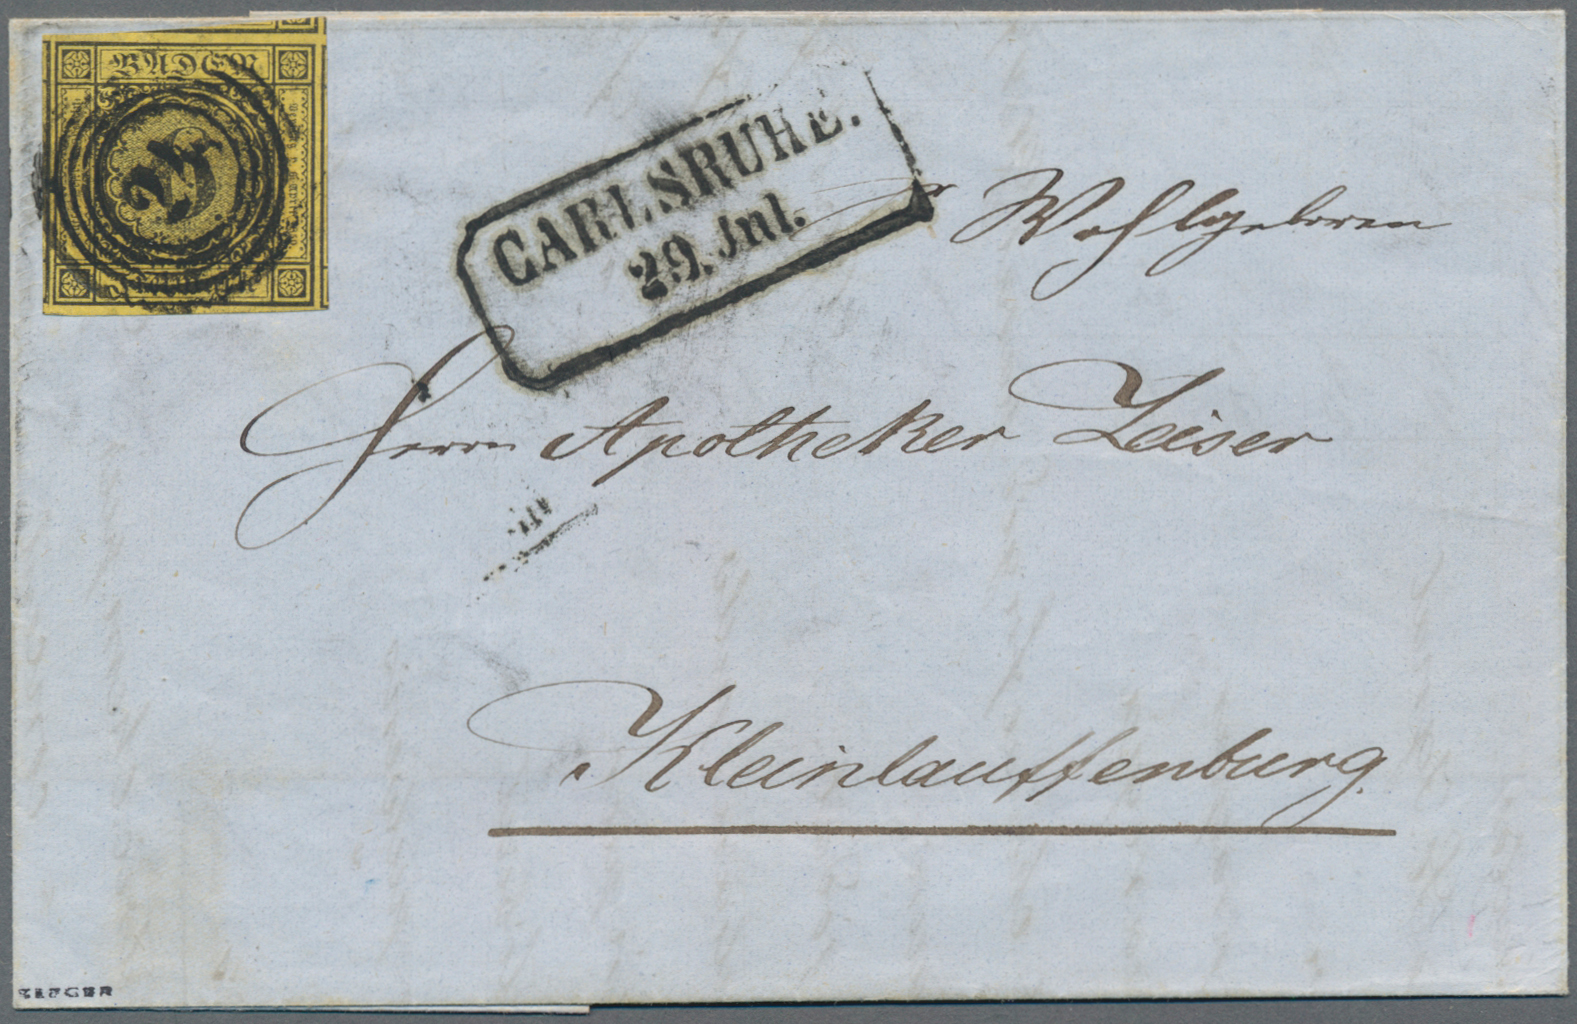 BADEN
24
CARLSRUHE.
29. Jul.
Wohlgeboren
Herrn Apotheker Zeiser
Kleinlauffenburg